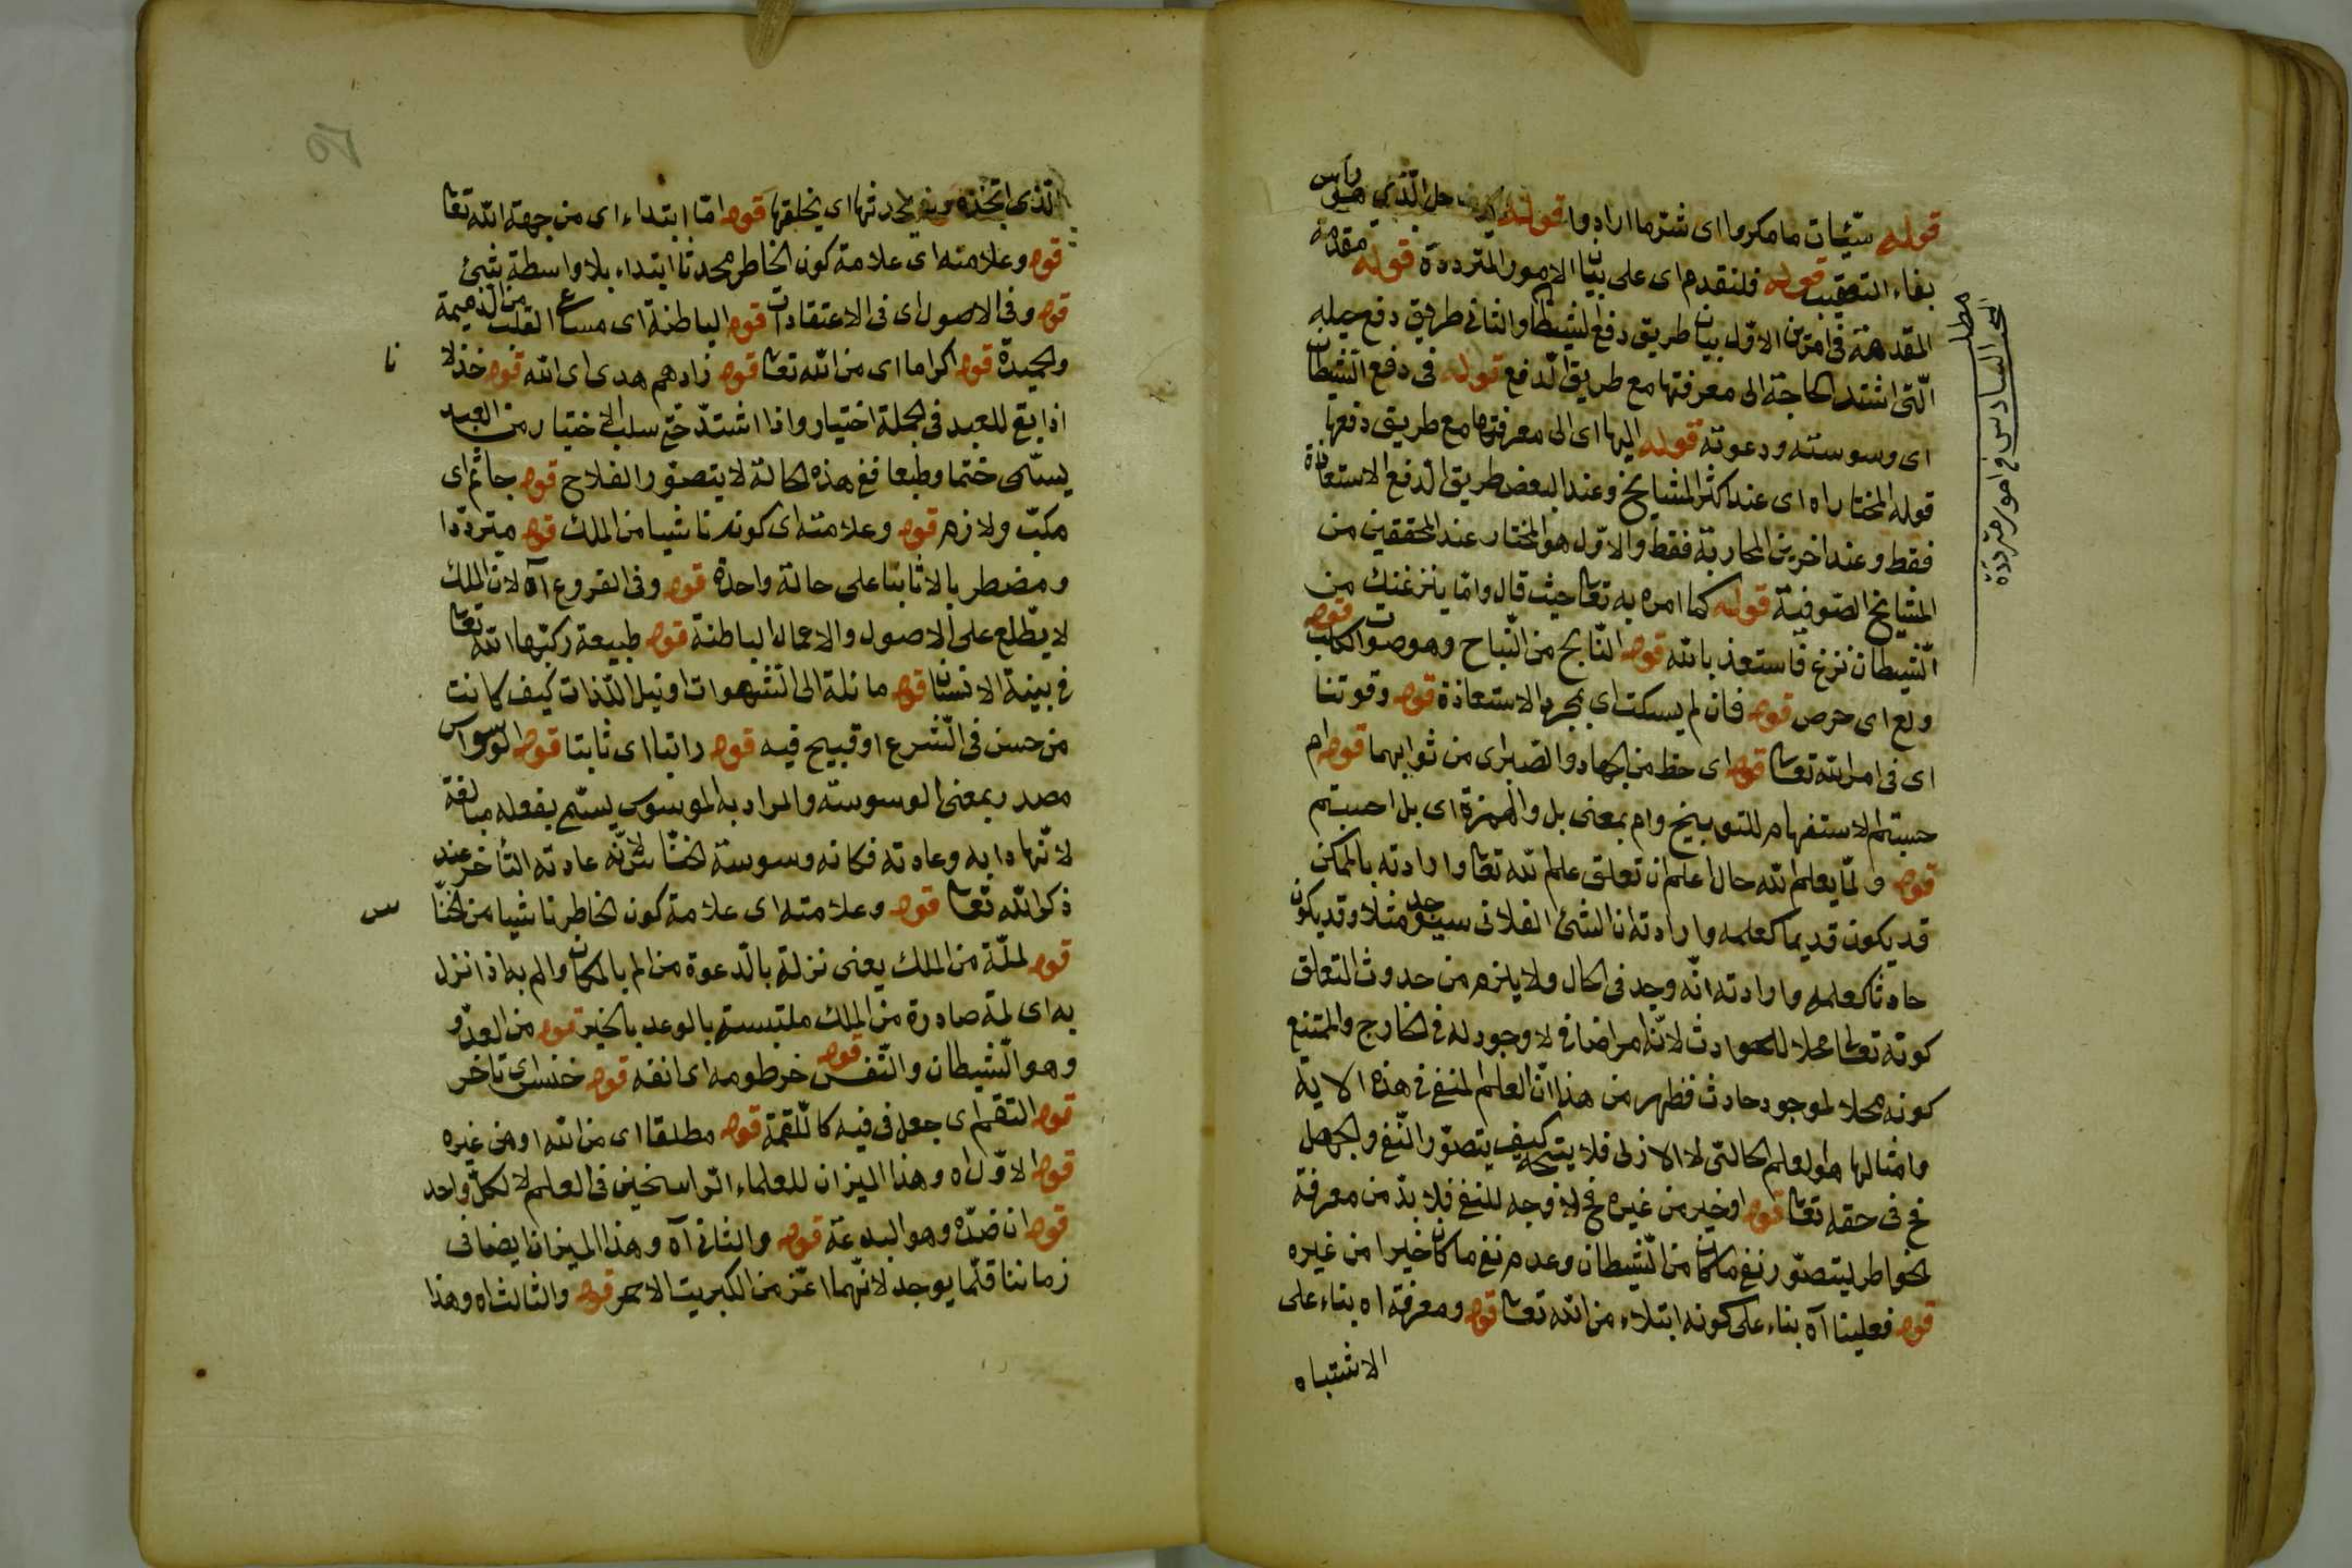 قوله سيّئات ما مكروا اى شرّ ما ارادوا قوله الرجل الّذى هو رأس
بفاء التعقيب قوله فلنقدم اى على بيان الامور المترددة قوله مقدمة
المقدمة فى امرين الاوّل بيان طريق دفع الشيطان والثانى طريق دفع حيله
الّتى اشتد الحاجة الى معرفتها مع طريق الدفع قوله فى دفع الشيطان
اى وسوسته ودعوته قوله اليها اى الى معرفتها مع طريق دفعها
قوله المختار اه اى عند اكثر المشايخ وعند البعض طريق الدفع الاستعاذة
فقط وعند اخرين المحاربة فقط والاوّل هو المختار عند المحققين من
المشايخ الصوفية قوله كما امره به تعا حيث قال وامّا ينزغنك من
الشيطان نزغ فاستعذ بالله قوله النّابح من النّباح وهو صوت الكلب قوله
ولع اى حرص قوله فان لم يسكت اى بمجرد الاستعاذة قوله وقوتنا
اى فى امر الله تعا قوله اى حظ من الجهاد والصبر اى من ثوابهما قوله ام
حسبتم الاستفهام للتوبيخ وام بمعنى بل والهمزة اى بل احسبتم
قوله ولمّا يعلم الله حال اعلم ان تعلق علم الله تعا وارادته بالممكن
قد يكون قديما كعلمه وارادته ان الشئ الفلانى سيوجد مثلا وقد يكون
حادثا كعلمه وارادته انّه وجد فى الحال ولا يلزم من حدوث التعلق
كونه تعا محلا للحوادث لانّه امر اضافى لا وجود له فى الخارج والممتنع
كونه محلا لموجود حادث فظهر من هذا انّ العلم المنفى فى هذه الاية
وامثالها هو العلم الحالى لا الازلى فلا يتجه كيف يتصوّر النّفى والجهل
فح فى حقه تعا قوله او خير من غيره فح لا وجه للنفى فلا بدّ من معرفة
الخواطر ليتصوّر نفى ما كان من الشيطان وعدم نفى ما كان خيرا من غيره
قوله فعلينا آه بناء على كونه ابتلاء من الله تعا قوله ومعرفة اه بناء على
الاشتباه
مطلب
البحث السادس فى امور مترددة
الّذى اتخذه قوله يحدثها اى يخلقها قوله امّا ابتداء اى من جهة الله تعا
قوله وعلامته اى علامة كون الخاطر محدثا ابتداء بلا واسطة شئ
قوله وفى الاصول اى فى الاعتقادات قوله الباطنة اى مساعى القلب من الذميمة
والحميدة قوله اكراما اى من الله تعا قوله زادهم هدى اى الله قوله خذلا
نا
اذا بقى للعبد فى الجملة اختيار واذا اشتدّ حتى سلب الاختيار من العبد
يسمّى ختما وطبعا ففى هذه الحالة لا يتصوّر الفلاح قوله جاثم اى
مكبّ ولازم قوله وعلامته اى كونه ناشيا من الملك قوله متردّدا
ومضطربا لا ثابتا على حالة واحدة قوله وفى الفروع آه لان الملك
لا يطّلع على الاصول والاعمال الباطنة قوله طبيعة ركبّها الله تعا
فى بنية الانسان قوله مائلة الى الشهوات او نيل اللّذات كيف كانت
من حسن فى الشرع او قبيح فيه قوله راتبا اى ثابتا قوله الوسواس
مصدر بمعنى الوسوسة والمراد به الموسوس يسمّى بفعله مبالغة
لانّها دابه وعادته فكانه وسوسة الخنّاس لانّه عادته التأخر عند
ذكر الله تعا قوله وعلامته اى علامة كون الخاطر ناشيا من الخنّا
س
قوله لمّة من الملك يعنى نزلة بالدّعوة من الم بالمكان والم به اذا نزل
به اى لمة صادرة من الملك ملتبسة بالوعد بالخير قوله من العدوّ
وهو الشيطان والنّفس قوله خرطومه اى انفه قوله خنس اى تاخر
قوله التقم اى جعل فى فيه كاللّقمة قوله مطلقا اى من الله او من غيره
قوله الاوّل اه وهذا الميزان للعلماء الراسخين فى العلم لا لكلّ واحد
قوله ان ضدّه وهو البدعة قوله والثانى آه وهذا الميزان ايضا فى
زماننا قلّما يوجد لانّهما اعزّ من الكبريت الاحمر قوله والثالث اه وهذا